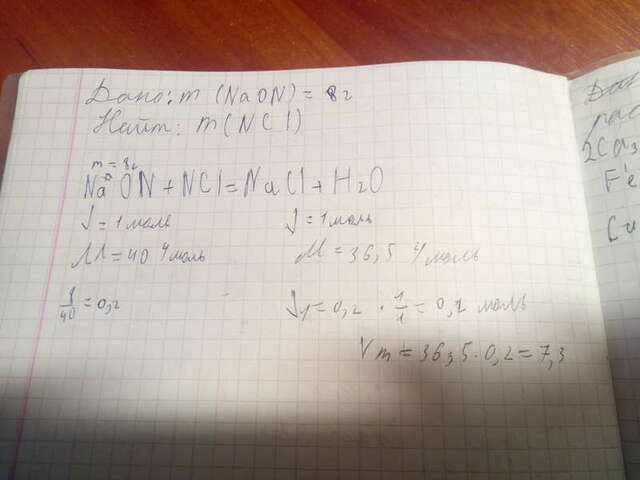 Дано: m (NaON) = 8г
Найт: m(NCl)
m = 8г
NaON + NCl = NaCl + H2O
ν = 1 моль ν = 1 моль
M = 40 г/моль M = 36,5 г/моль
8/40 = 0,2 ν1 = 0,2 · 1/1 = 0,2 моль
m = 36,5 · 0,2 = 7,3
2Ca3
Fe